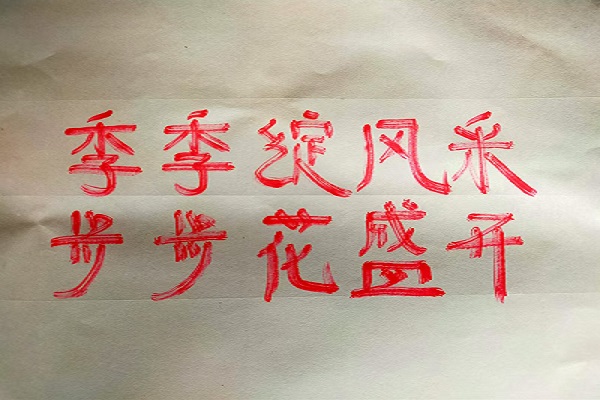 季季绽风采
步步花盛开